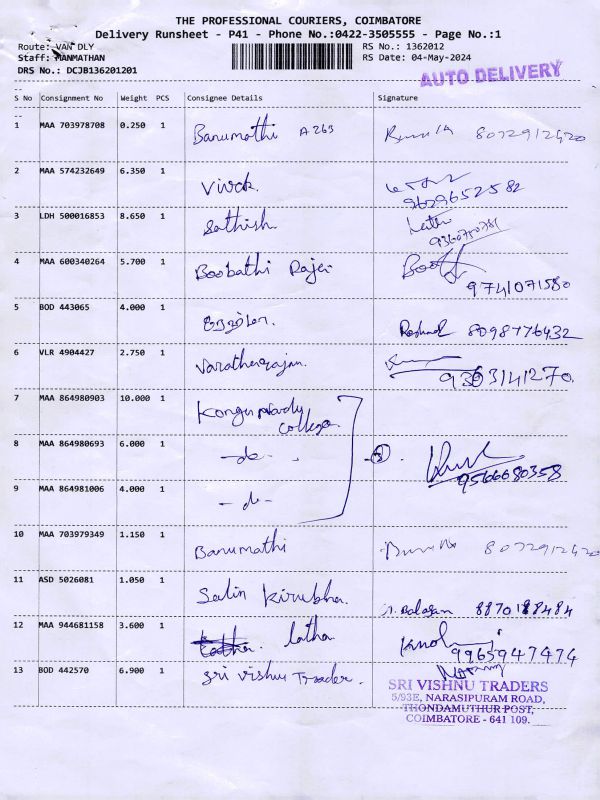 THE PROFESSIONAL COURIERS, COIMBATORE
Delivery Runsheet - P41 - Phone No.:0422-3505555 - Page No.:1
Route: VAN DLY RS No.: 1362012
Staff: MANMATHAN RS Date: 04-May-2024
DRS No.: DCJB136201201
AUTO DELIVERY
S No Consignment No Weight PCS Consignee Details Signature
1 MAA 703978708 0.250 1 Banumathi A 263 8072912420
2 MAA 574232649 6.350 1 Vivek. 9629652582
3 LDH 500016853 8.650 1 Sathish.
4 MAA 600340264 5.700 1 Boobathi Raja 9741071580
5 BOD 443065 4.000 1 8098776432
6 VLR 4904427 2.750 1 Varatharajan. 9363141270.
7 MAA 864980903 10.000 1 Kongunadu College.
8 MAA 864980693 6.000 1 -do- 9566680358
9 MAA 864981006 4.000 1 -do-
10 MAA 703979349 1.150 1 Banumathi 8072912420
11 ASD 5026081 1.050 1 Salin Kirubha. 8870188484
12 MAA 944681158 3.600 1 latha 9965947474
13 BOD 442570 6.900 1 Sri Vishnu Trader.
SRI VISHNU TRADERS
5/93E, NARASIPURAM ROAD,
THONDAMUTHUR POST,
COIMBATORE - 641 109.